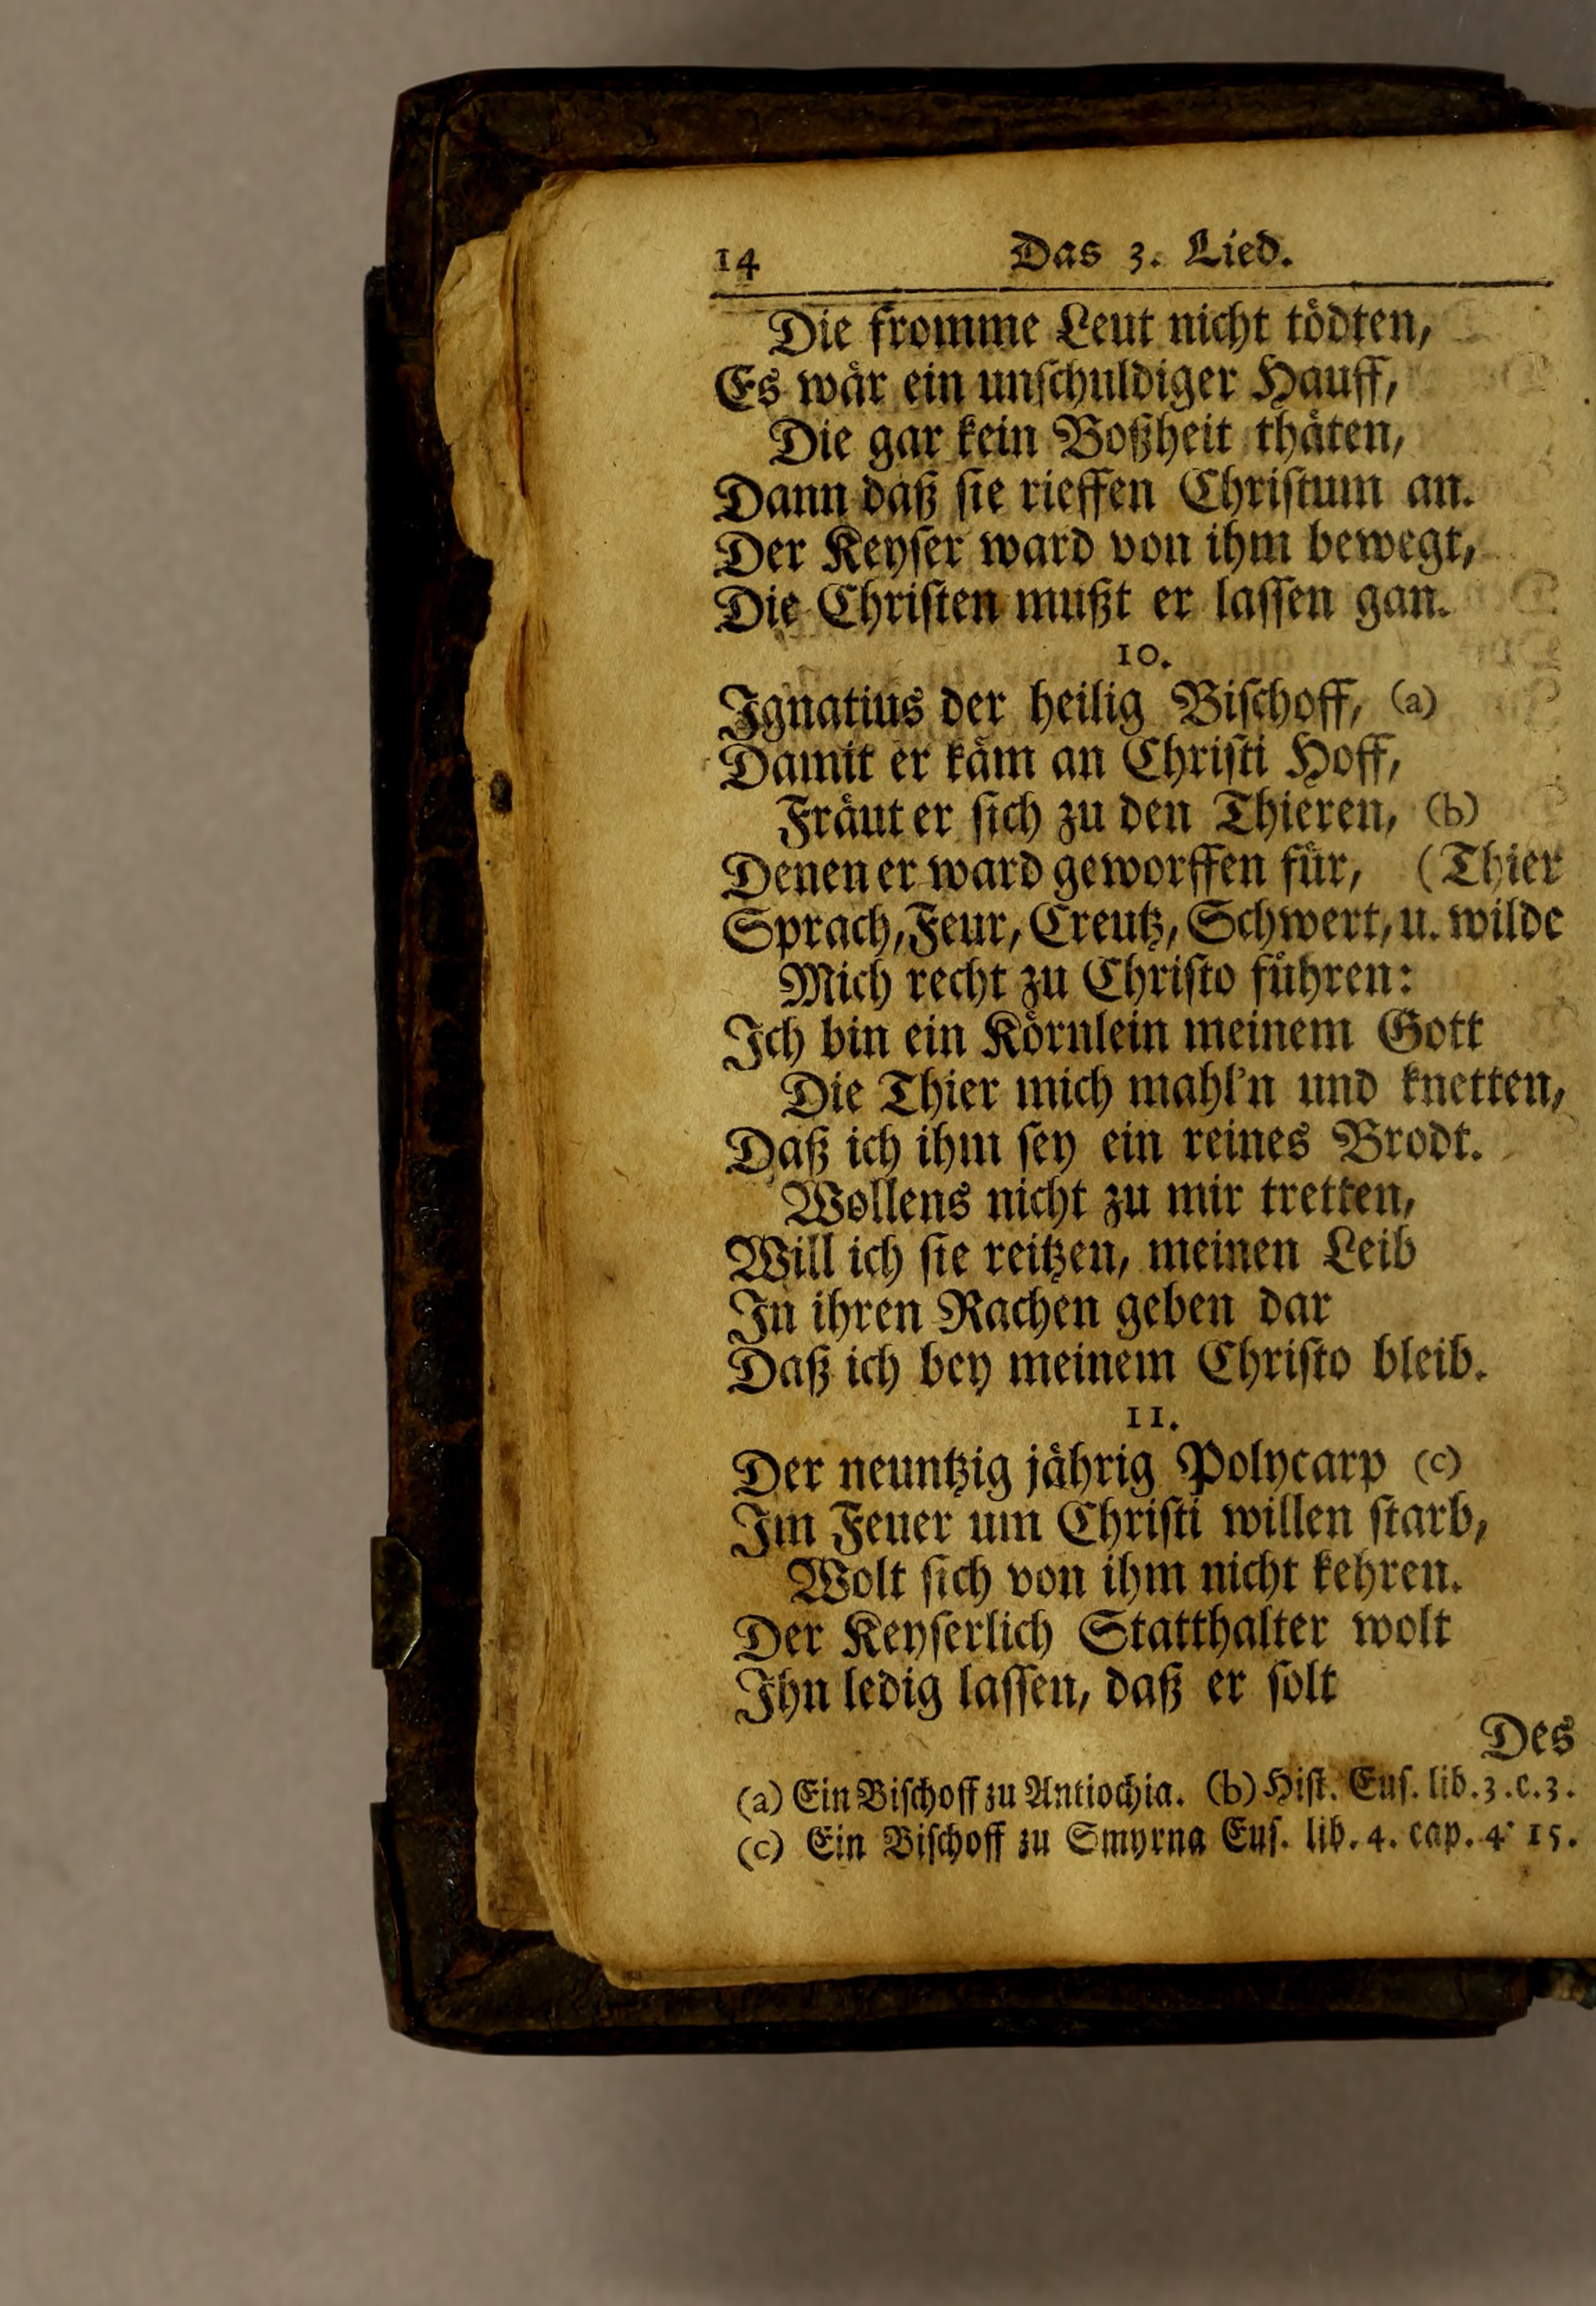 14 Das 3. Lied.
Die fromme Leut nicht tödten,
Es wär ein unſchuldiger Hauff,
Die gar kein Boßheit thäten,
Dann daß ſie rieffen Chriſtum an.
Der Keyſer ward von ihm bewegt,
Die Chriſten mußt er laſſen gan.
10.
Ignatius der heilig Biſchoff, (a)
Damit er käm an Chriſti Hoff,
Fräut er ſich zu den Thieren, (b)
Denen er ward geworffen für, (Thier
Sprach, Feur, Creutz, Schwert, u. wilde
Mich recht zu Chriſto führen:
Ich bin ein Körnlein meinem Gott
Die Thier mich mahl'n und knetten,
Daß ich ihm ſey ein reines Brodt.
Wollens nicht zu mir tretten,
Will ich ſie reitzen, meinen Leib
In ihren Rachen geben dar
Daß ich bey meinem Chriſto bleib.
11.
Der neuntzig jährig Polycarp (c)
Im Feuer um Chriſti willen ſtarb,
Wolt ſich von ihm nicht kehren.
Der Keyſerlich Statthalter wolt
Ihn ledig laſſen, daß er ſolt
Des
(a) Ein Biſchoff zu Antiochia. (b) Hiſt. Euſ. lib. 3. c. 3.
(c) Ein Biſchoff zu Smyrna Euſ. lib. 4. cap. 4. 15.